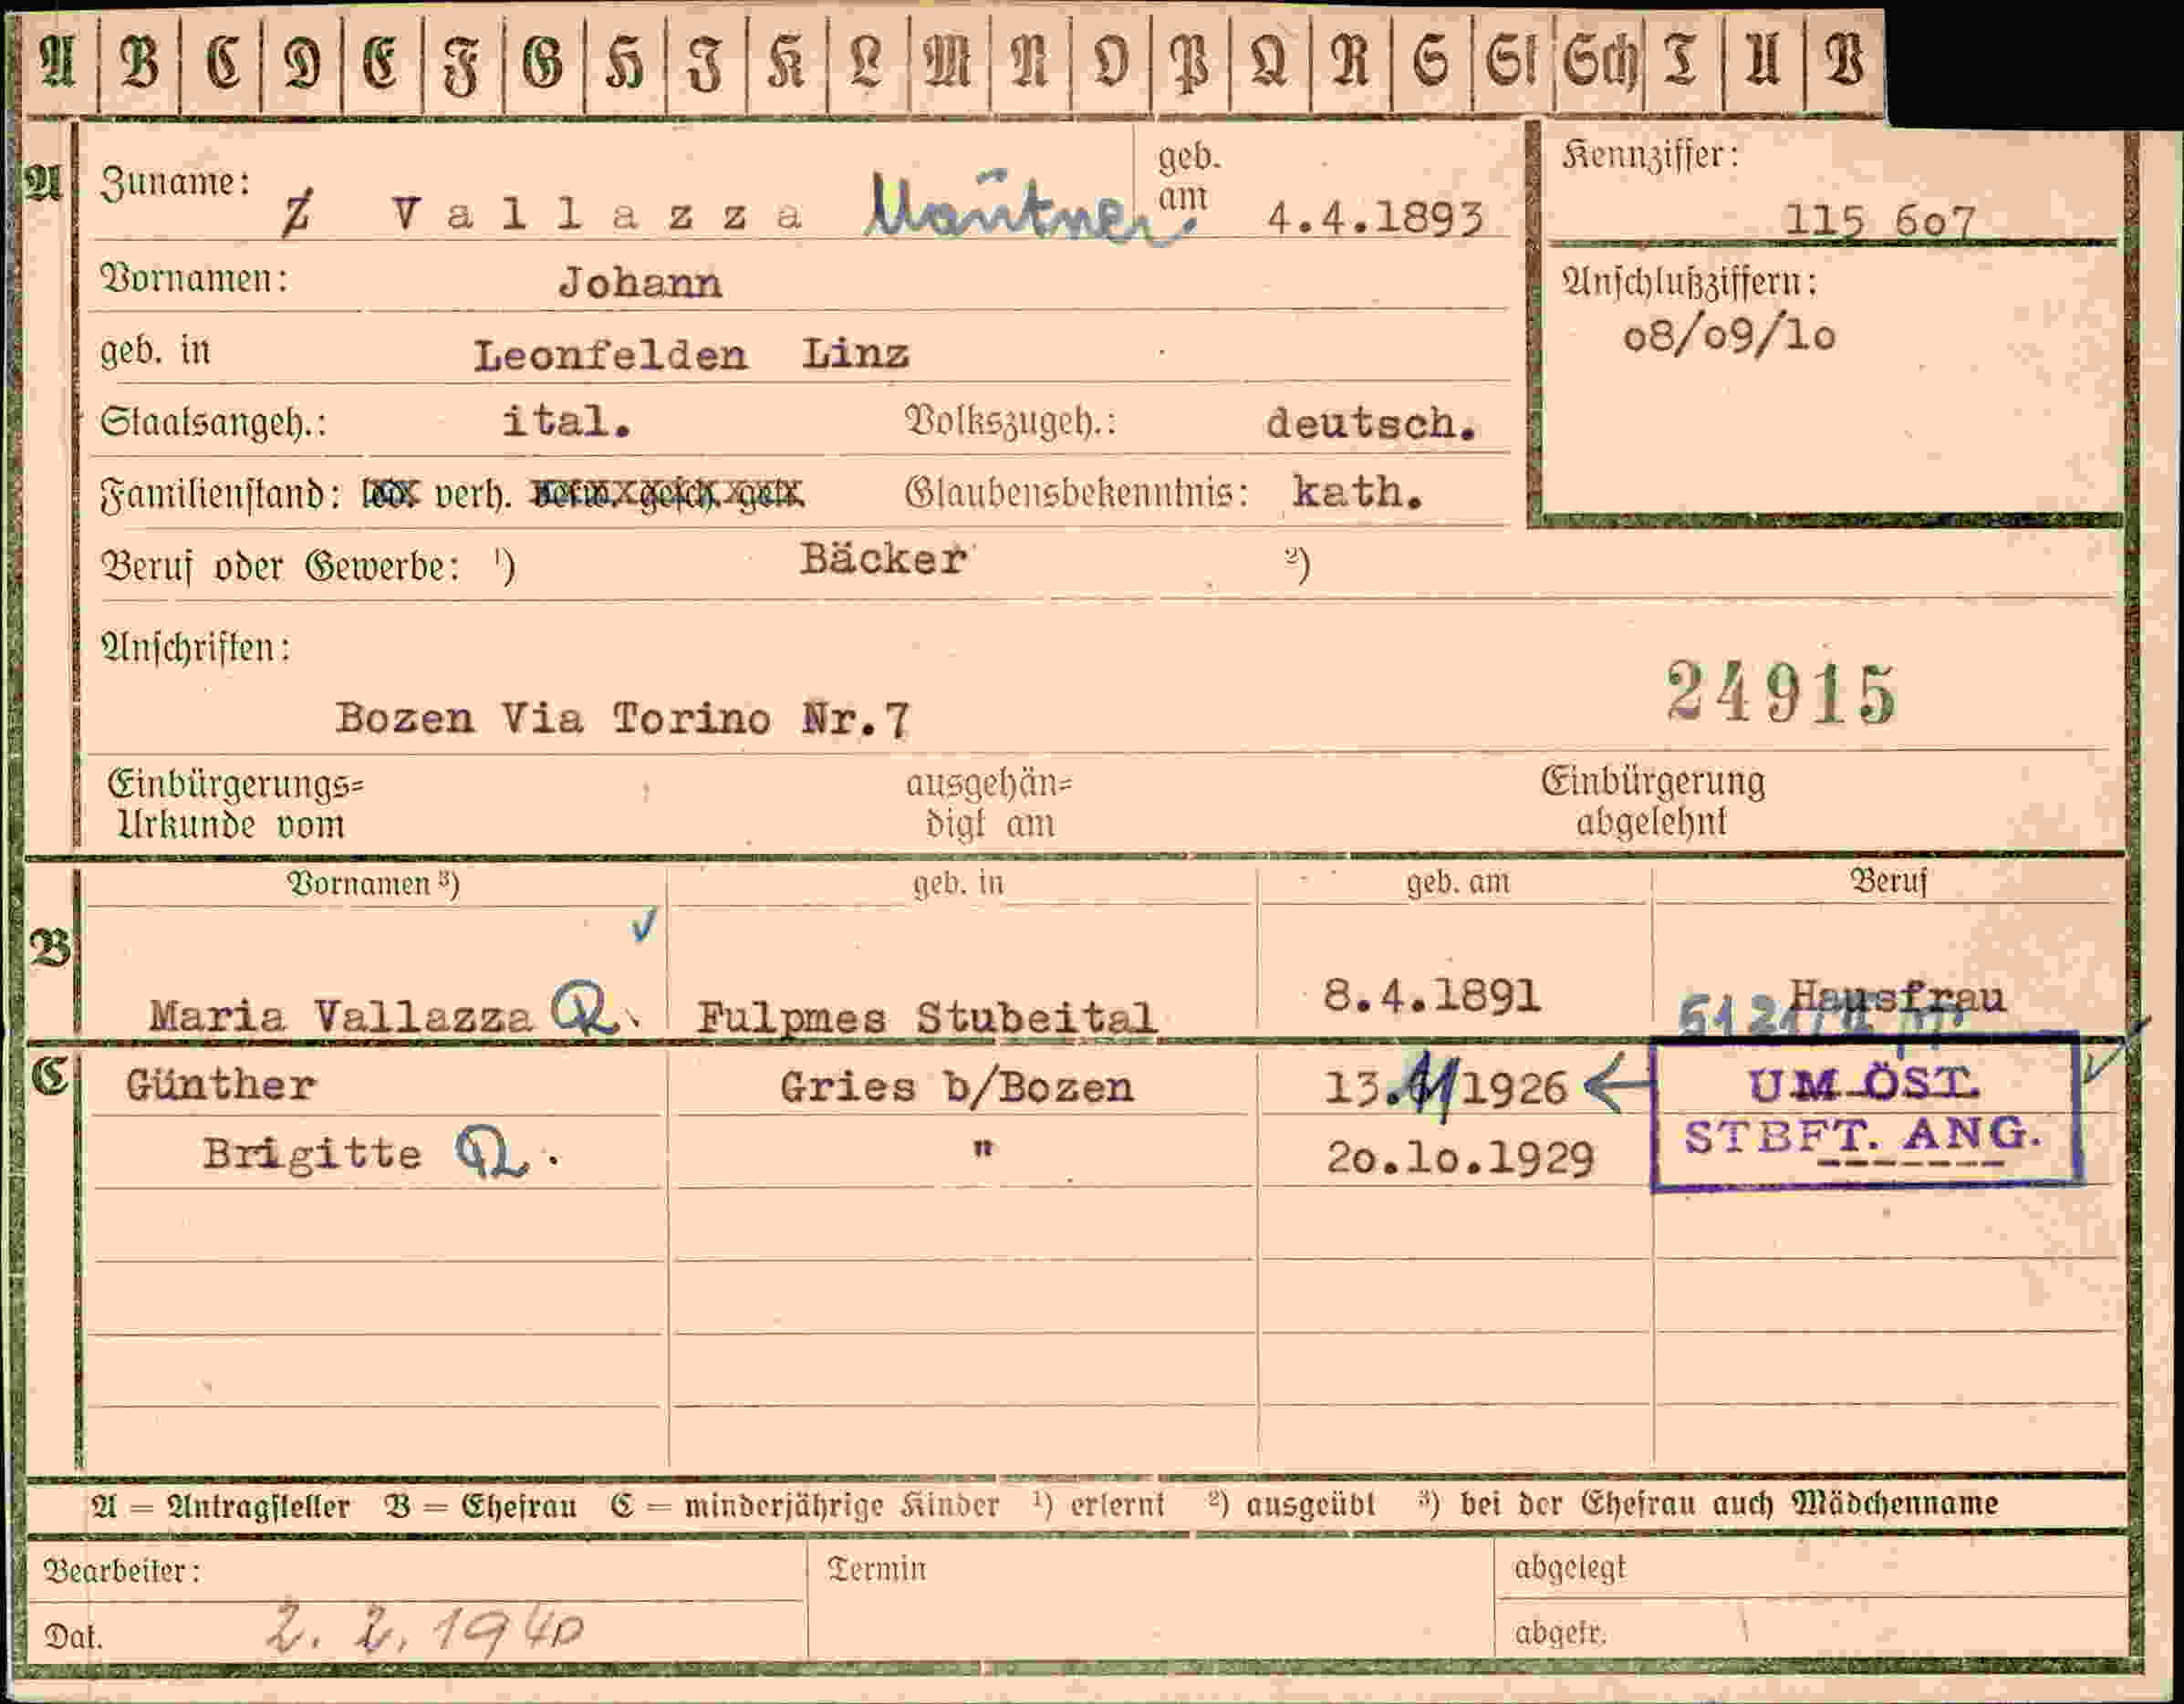 A B C D E F G H I K L M N O P Q R S St Sch T U V
A Zuname: Z Vallazza Mautner geb. am 4.4.1893
Kennziffer: 115 6o7
Vornamen: Johann
Anschlußziffern:
o8/o9/1o
geb. in Leonfelden Linz
Staatsangeh.: ital. Volkszugeh.: deutsch.
Familienstand: verh. Glaubensbekenntnis: kath.
Beruf oder Gewerbe: ¹) Bäcker ²)
Anschriften:
24915
Bozen Via Torino Nr.7
Einbürgerungs= ausgehän= Einbürgerung
Urkunde vom digt am abgelehnt
Vornamen ³) geb. in geb. am Beruf
B
Maria Vallazza Fulpmes Stubeital 8.4.1891 Hausfrau
C Günther Gries b/Bozen 13.11 1926
UM ÖST.
STBFT. ANG.
Brigitte " 2o.1o.1929
A = Antragsteller B = Ehefrau C = minderjährige Kinder ¹) erlernt ²) ausgeübt ³) bei der Ehefrau auch Mädchenname
Bearbeiter: Termin abgelegt
Dat. 2.2.1940 abgetr.